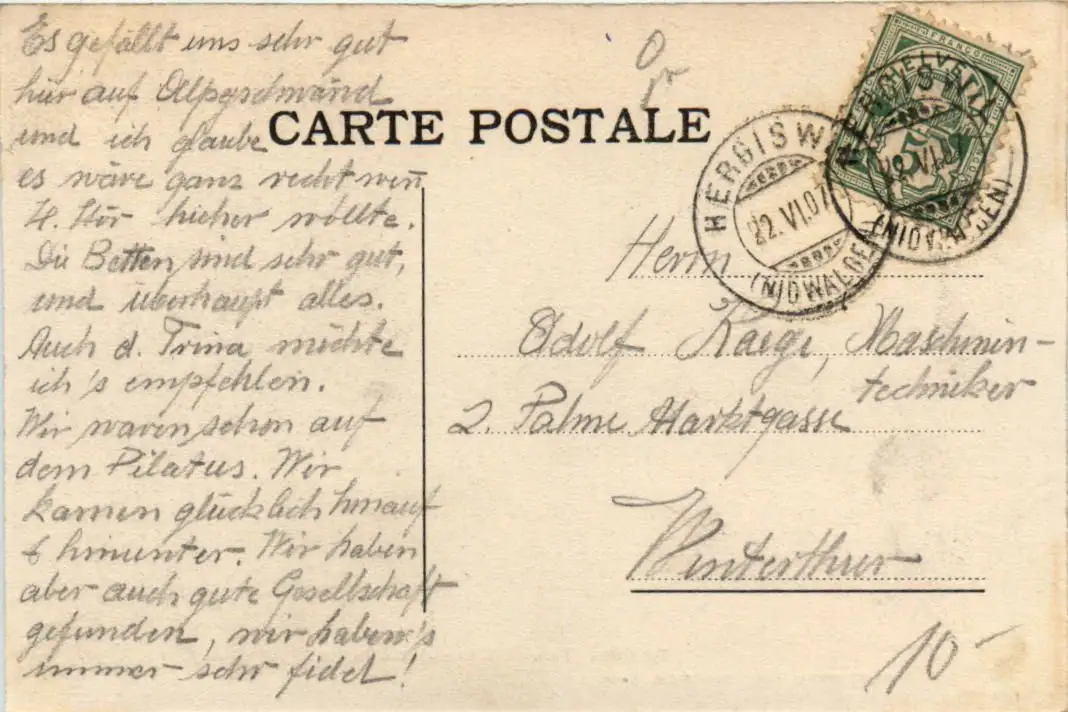 Es gefällt uns sehr gut
hier auf Alpgschwänd
und ich glaube
es wäre ganz recht wen̄
H. Hör hieher wollte.
Die Betten sind sehr gut,
und überhaupt alles.
Auch d. Trina möchte
ich's empfehlen.
Wir waren schon auf
dem Pilatus. Wir
kamen glücklich hinauf
& hinunter. Wir haben
aber auch gute Gesellschaft
gefunden, wir haben's
immer sehr fidel!
CARTE POSTALE
FRANCO
HELVETIA
HERGISWIL
22.VI.07
(NIDWALDEN)
HERGISWIL
22.VI.07
(NIDWALDEN)
Herrn
Adolf Kaegi, Maschinen-
techniker
z. Palme Marktgasse
Winterthur
10-